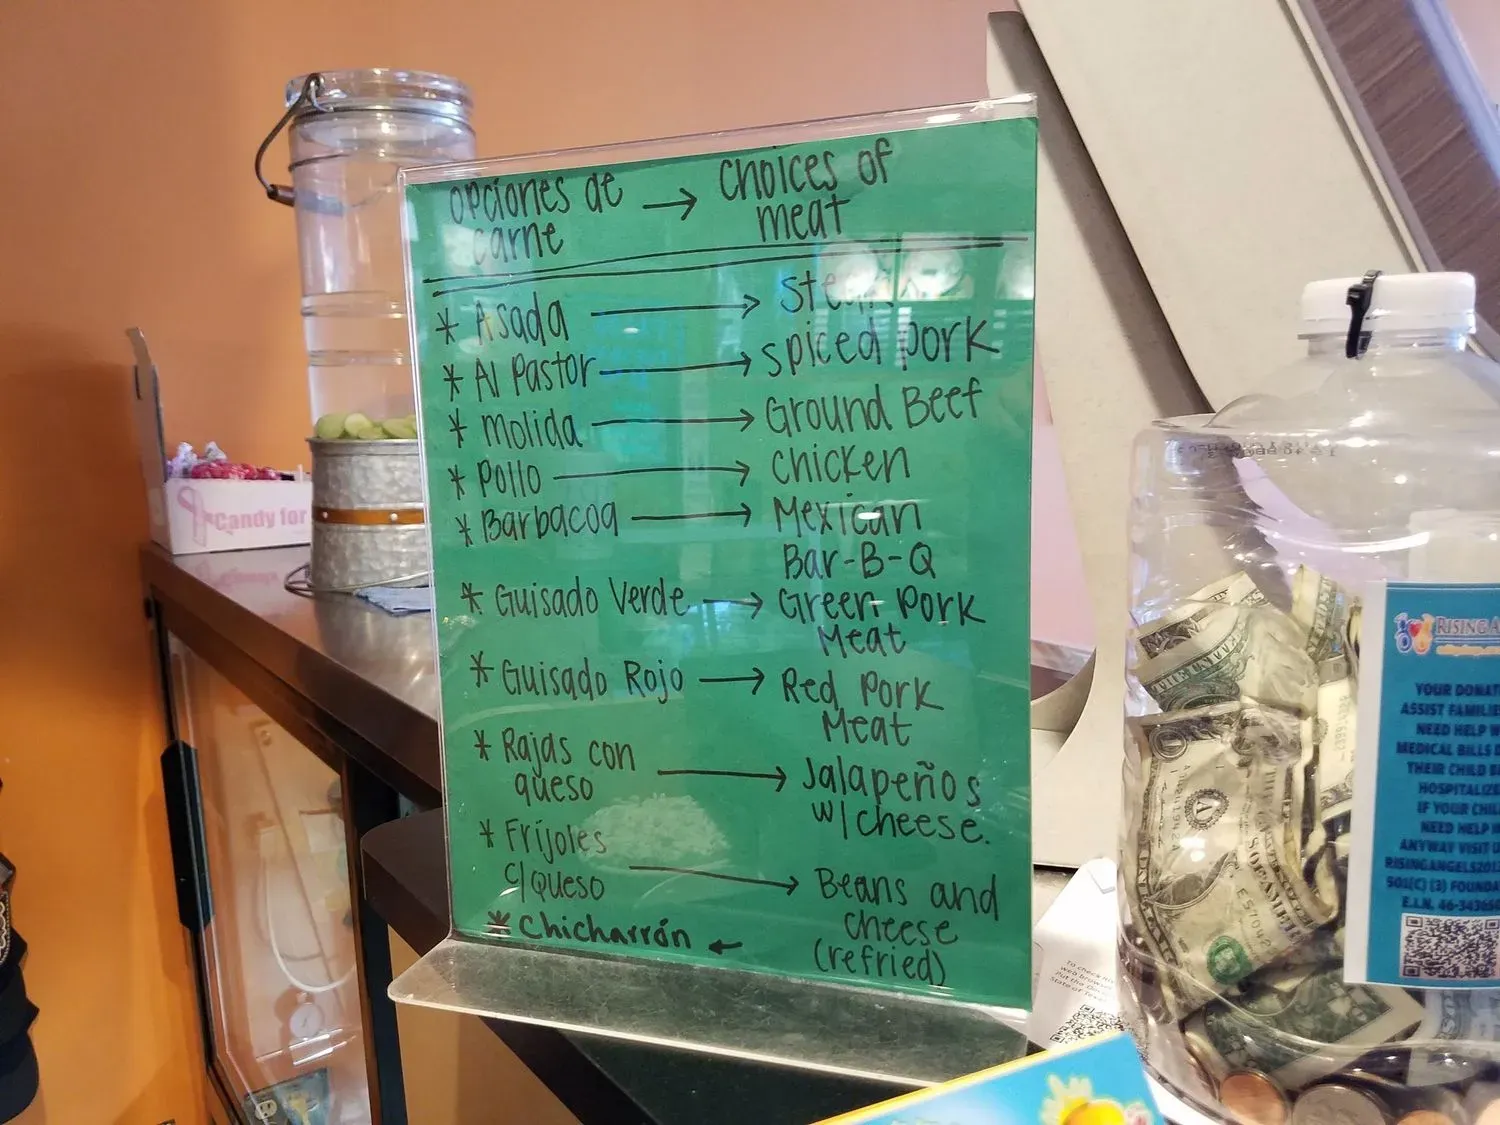 opciones de → choices of
carne meat
* Asada → steak
* Al Pastor → spiced pork
* Molida → Ground Beef
* Pollo → chicken
* Barbacoa → Mexican
Bar-B-Q
* Guisado Verde → Green Pork
Meat
* Guisado Rojo → Red Pork
Meat
* Rajas con
queso → Jalapeños
w/cheese.
* Frijoles
c/queso → Beans and
cheese
(refried)
* Chicharrón ←
Candy for
RISING
YOUR
ASSIST
NEED HELP
MEDICAL BILLS
THEIR CHILD
IF YOUR
NEED HELP
ANYWAY VISIT
501(C) (3)
E.I.N.
To check
web browser
State of Texas